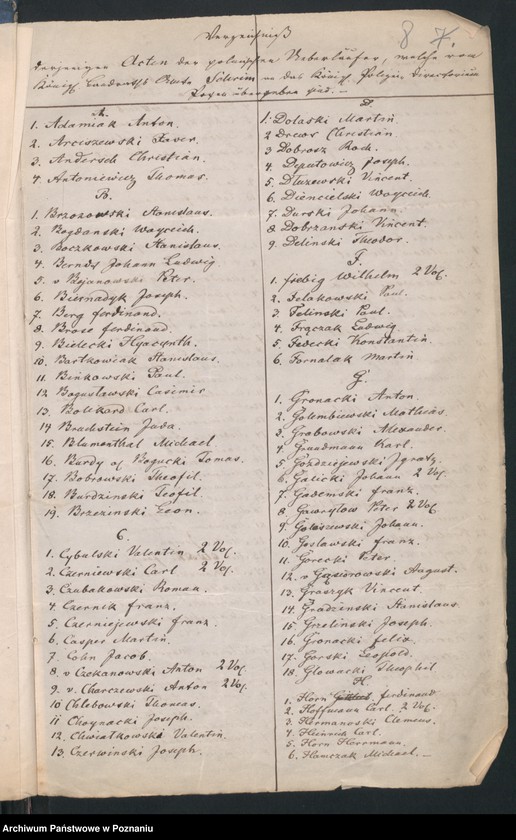 8 7.
Verzeichniß
derjenigen Acten der polnischen Ueberläufer, welche vom
Königl Landraths Amte Schrim an das Königl Polizei Directorium
Posen übergeben sind. –
A.
1. Adamiak Anton.
2. Arciszewski Xaver.
3. Andersch Christian.
4. Antoniewicz Thomas.
B.
1. Brzozowski Stanislaus.
2. Bogdanski Woyciech.
3. Boczkowski Stanislaus.
4. Berndt Johann Ludwig
5. v Bojanowski Peter.
6. Biernadyk Joseph.
7. Berg ferdinand.
8. Brose ferdinand.
9. Bielecki Hyacynth.
10. Bartkowiak Stanislaus.
11. Binkowski Paul.
12. Boguslawski Casimir
13. Bollkard Carl.
14 Brachstein Juda.
15. Blumenthal Michael
16. Burdy o/ Bogucki Tomas.
17. Bobrowski Theofil.
18. Burdzinski Teofil.
19. Brzezinski Leon.
C.
1. Cybulski Valentin 2 Vol.
2. Czerniewski Carl 2 Vol.
3. Czubakowski Roman.
4. Czernik franz.
5. Czerniejewski franz.
6. Casper Martin.
7. Cohn Jacob.
8. v Czekanowski Anton 2 Vol.
9. v. Charczewski Anton 2 Vol.
10 Chlebowski Thomas.
11 Choynacki Joseph.
12. Chwiatkowski Valentin.
13. Czerwinski Joseph.
D.
1. Dolaski Martin
2 Drews Christian.
3 Dobrosz Roch.
4. Deputowicz Joseph.
5. Dluzewski Vincent.
6. Diencielski Woyciech.
7. Durski Johann.
8. Dobrzanski Vincent.
9. Delinski Theodor.
F.
1. fiebig Wilhelm 2 Vol.
2. Felakowski Paul.
3. Felinski Paul.
4. Frączak Ludwig.
5. Fedecki Konstantin.
6. Fornalak Martin
G.
1. Gronacki Anton.
2. Golembiewski Matheus.
3. Grabowski Alexander.
4. Grundmann Karl.
5. Gozdziejewski Ignatz.
6. Galicki Johann 2 Vol.
7. Gadomski franz.
8. Gawrylow Peter 2 Vol.
9. Golaszewski Johann.
10. Goslawski franz.
11. Gorecki Peter.
12. v Gąsiorowski August.
13. Groszyk Vincent.
14. Grodzinski Stanislaus
15. Grzelinski Joseph.
16. Gronacki felix.
17. Gorski Leopold.
18. Glowacki Theophil
H.
1. Horn ferdinand.
2. Hoffmann Carl. 2 Vol.
3. Hermanorski Clemens.
4. Heinrich Carl.
5. Horn Herrmann.
6. Hamczak Michael. –
Archiwum Państwowe w Poznaniu